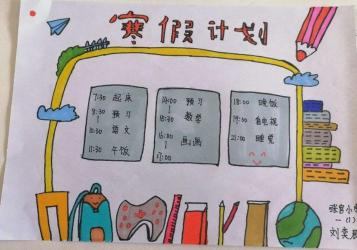 寒假计划
7:30 起床
8:30 预习
10:30 语文
11:30 午饭
14:00 预习
16:30 数学
16:00 画画
17:00
18:00 晚饭
19:00 看电视
21:00 睡觉
一(1)